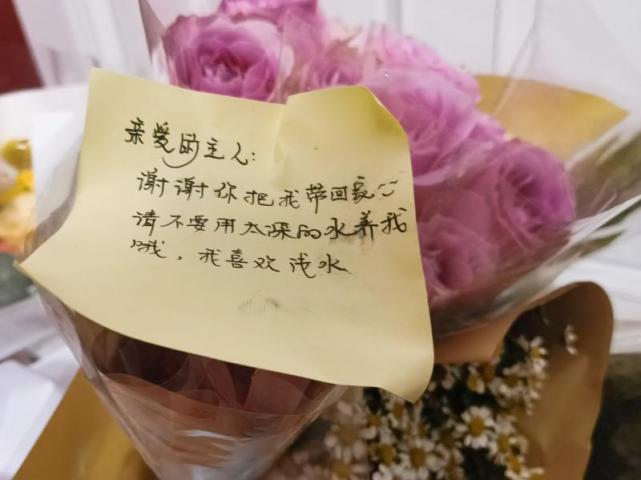 亲爱的主人:
谢谢你把我带回家
请不要用太深的水养我
哦,我喜欢浅水